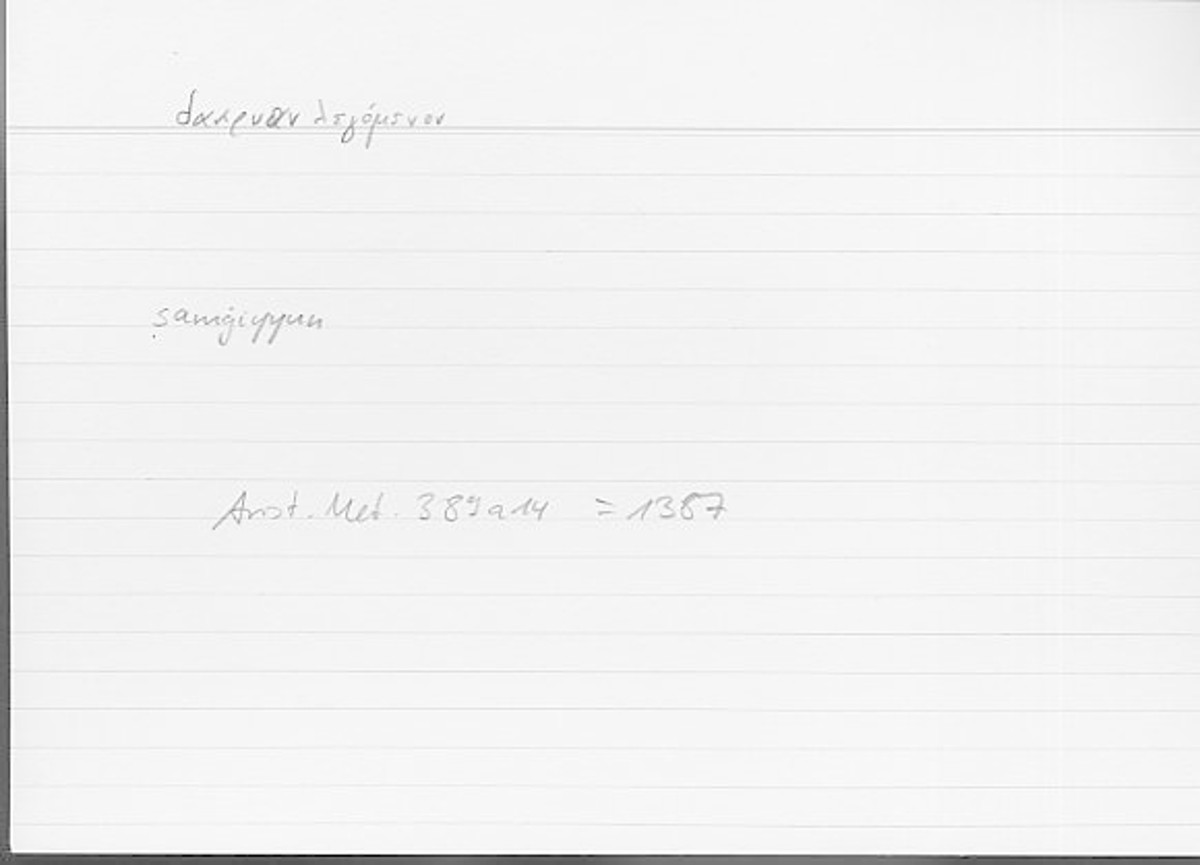 δακρυον λεγόμενον
ṣamġiyyun
Arist. Met. 389a14 = 1387